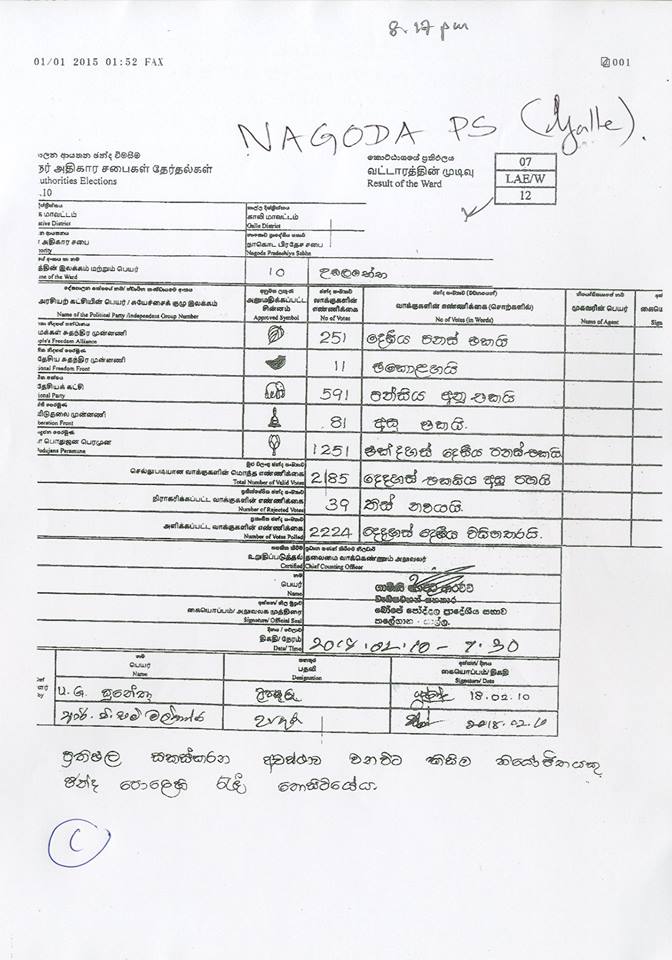 8.17 pm
01/01 2015 01:52 FAX
001
NAGODA PS (Galle).
පාලන ආයතන ඡන්ද විමසීම
அதிகார சபைகள் தேர்தல்கள்
uthorities Elections
.10
කොට්ඨාශයේ ප්‍රතිඵලය
வட்டாரத்தின் முடிவு
Result of the Ward
07
LAE/W
12
மாவட்டம்
ative District
ගාල්ල දිස්ත්‍රික්කය
காலி மாவட்டம்
Galle District
அதிகார சபை
hority
නාගොඩ පිරදේச சபை
Nagoda Pradeshiya Sabha
த்தின் இலக்கம் மற்றும் பெயர்
me of the Ward
10
அரசியற் கட்சியின் பெயர் / சுயேச்சைக் குழு இலக்கம்
Name of the Political Party /Independent Group Number
அனுமதிக்கப்பட்ட சின்னம்
Approved Symbol
ඡන්ද සංඛ්‍යාව
வாக்குகளின் எண்ணிக்கை
No of Votes
வாக்குகளின் எண்ணிக்கை (சொற்களில்)
No of Votes (in Words)
முகவரின் பெயர்
Name of Agent
மக்கள் சுதந்திர முன்னணி
ple's Freedom Alliance
251 දෙසිය පනස් එකයි
தேசிய சுதந்திர முன்னணி
ional Freedom Front
11 එකොළහයි
தேசியக் கட்சி
ional Party
591 පන්සිය අනූ එකයි
விடுதலை முன்னணி
beration Front
81 අසූ එකයි.
பொதுஜன பெரமுன
odujana Peramune
1251 එක්දහස් දෙසිය පනස් එකයි
செல்லுபடியான வாக்குகளின் மொத்த எண்ணிக்கை
Total Number of Valid Votes
2185 දෙදහස් එකසිය අසූ පහයි
நிராகரிக்கப்பட்ட வாக்குகளின் எண்ணிக்கை
Number of Rejected Votes
39 තිස් නවයයි.
அளிக்கப்பட்ட வாக்குகளின் எண்ணிக்கை
Number of Votes Polled
2224 දෙදහස් දෙසිය විසිහතරයි.
உறுதிப்படுத்தல் தலைமை வாக்கெண்ணும் அலுவலர்
Certified Chief Counting Officer
பெயர்
Name
බෝපේ පෝද්දල ප්‍රාදේශීය සභාව
கையொப்பம்/ அலுவலக முத்திரை
Signature/ Official Seal
දිනය / වේලාව
திகதி/ நேரம்
Date/ Time
2018.02.10 - 7.30
නම
பெயர்
Name
තනතුර
பதவி
Designation
අත්සන/ දිනය
கையொப்பம்/ திகதி
Signature/ Date
U.G. සුනේත්‍රා
18.02.10
2018.02.10
ප්‍රතිඵල සකස්කරන අවස්ථාව වනවිට කිසිම නියෝජිතයකු
ඡන්ද පොලෙහි රැඳී නොසිටියේය.
C